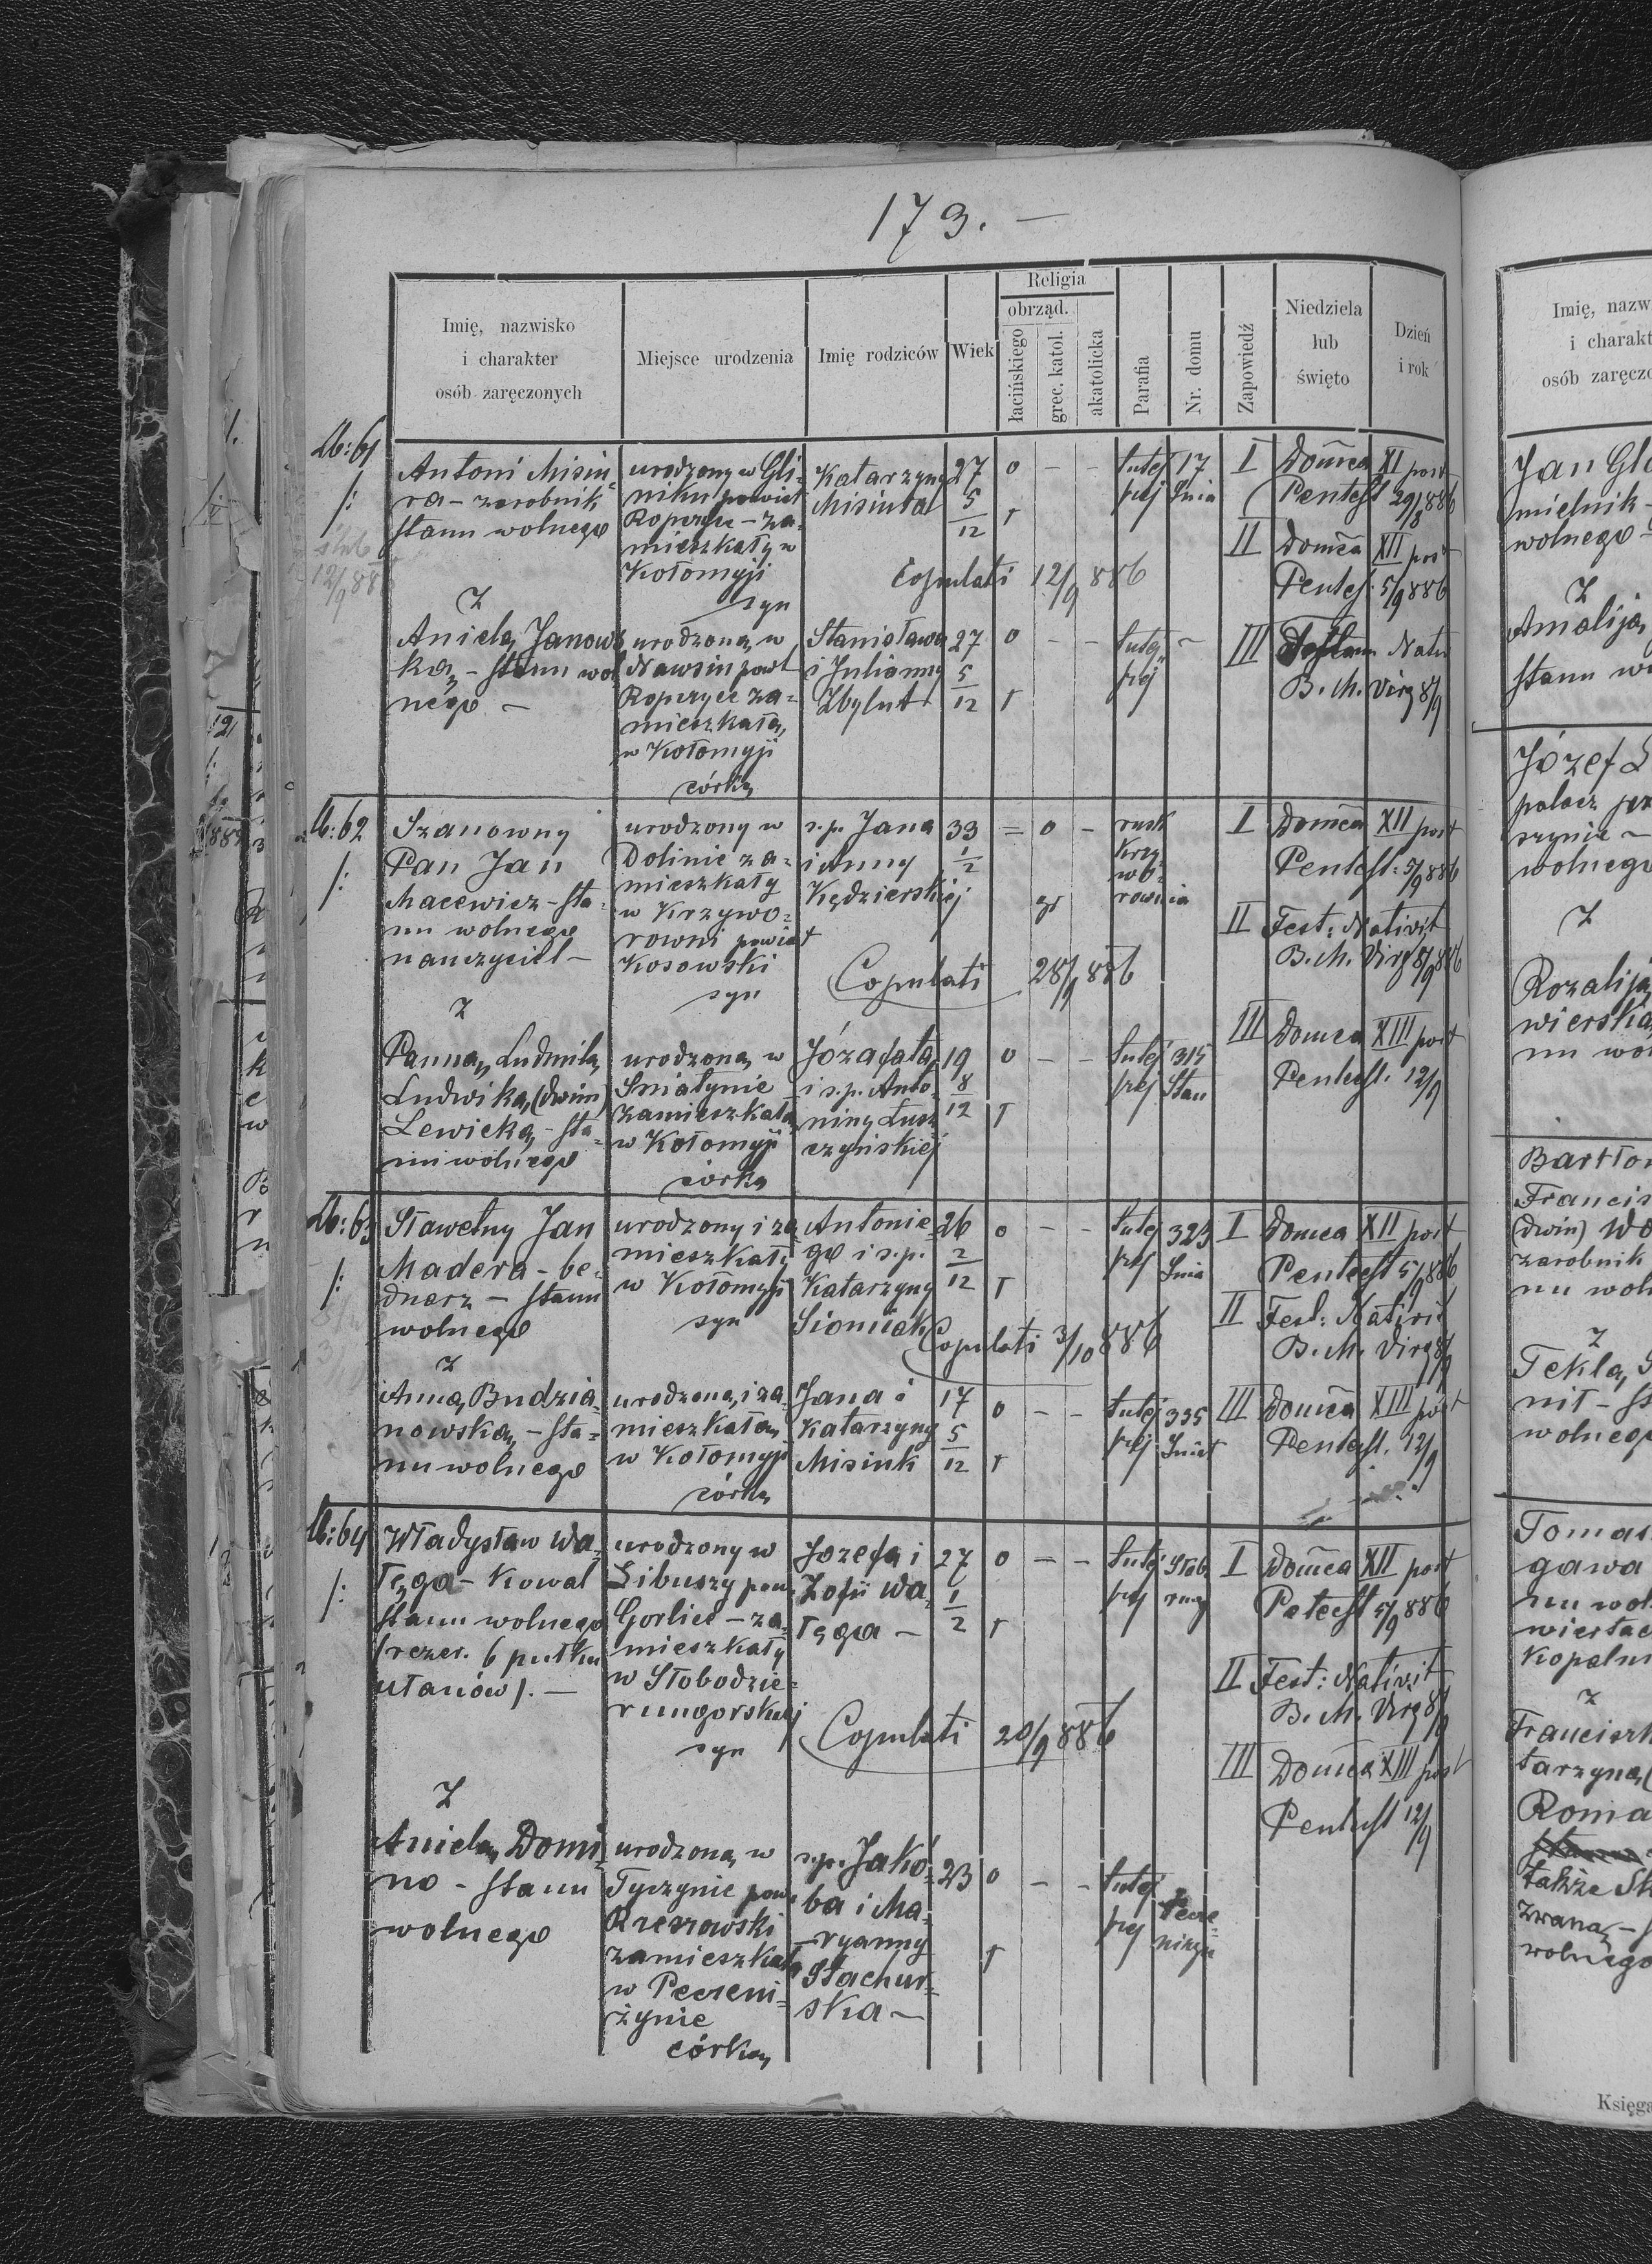 173. —
Religia
obrząd.
Imię, nazwisko
i charakter
osób zaręczonych
Miejsce urodzenia
Imię rodziców
Wiek
łacińskiego
grec. katol.
akatolicka
Parafia
Nr. domu
Zapowiedź
Niedziela
lub
święto
Dzień
i rok
Lb: 61
Antoni Misiu-
ra – zarobnik
stanu wolnego
z
urodzony w Gli-
niku powiat
Ropczyce – za-
mieszkały w
Kołomyji
syn
Katarzyny
Misiura
27
5
12
o – –
r
tutej
szej
17
Śnia
I Domca XI post
Pentest 29/8 886
II Domca XII post
Pentes: 5/9 886
Copulati 12/9 886
ślub
12/9 886
Anielą Janows
ką – stanu wol
nego –
urodzoną w
Nawsiu powt
Ropczyce za-
mieszkałą
w Kołomyji
córką
Stanisława
i Julianny
Zbylut
27
5
12
o – –
r
tutej
szej
–
III Festum Nativ
B. M. Virg 8/9
Lb: 62
Szanowny
Pan Jan
Macewicz – sta-
nu wolnego
nauczyciel –
z
urodzony w
Dolinie za-
mieszkały
w Krzywo-
rowni powiat
Kosowski
syn
s.p. Jana
i Anny
Kędzierskiej
33
1
2
= o –
gr
rusk
Krzy
wo-
rownia
I Domca XII post
Pentest: 5/9 886
II Fest: Nativit
B. M. Virg 8/9 886
Copulati 28/9 886
Panną Ludmilą
Ludwiką (dwim)
Lewicką – sta-
nu wolnego
urodzoną w
Sniatynie
zamieszkałą
w Kołomyji
córką
Józafata
i s.p. Anto-
niny Łusz
czyńskiej
19
8
12
o – –
r
tutej
szej
315
Stan
III Domca XIII post
Pentest. 12/9
Lb: 63
Sławetny Jan
Madera – be-
dnarz – stanu
wolnego
z
urodzony i za-
mieszkały
w Kołomyji
syn
Antonie-
go i s.p.
Katarzyny
Sioniak
26
2
12
o – –
r
tutej
szej
323
Śnia
I Domca XII post
Pentest 5/9 886
II Fest: Nativit
B. M. Virg 8/9
Copulati 3/10 886
Anną Budzia-
nowską – sta-
nu wolnego
urodzoną i za-
mieszkałą
w Kołomyji
córką
Jana i
Katarzyny
Misiuk
17
5
12
o – –
r
tutej
szej
335
Śniat
III Domca XIII post
Pentest. 12/9
Lb: 64
Władysław Wa-
łęga – kowal
stanu wolnego
(rezer. 6 pułku
ułanów). –
z
urodzony w
Libuszy pow.
Gorlice – za-
mieszkały
w Słobodzie-
rungorskiej
syn
Józefa i
Zofii Wa-
łęga –
27
1
2
o – –
r
tutej
szej
Słob.
rung
I Domca XII post
Petest 5/9 886
II Fest: Nativit
B. M. Virg 8/9
III Domca XIII post
Pentest 12/9
Copulati 20/9 886
Anielą Domi-
no – stanu
wolnego
urodzoną w
Tyczynie pow.
Rzeszowski
zamieszkałą
w Peczeni-
żynie
córką
s.p. Jakó-
ba i Ma-
ryanny
Stachur-
ska –
23
o – –
r
tutej
szej
Pecze-
niżyn
Imię, nazw
i charakt
osób zaręczo
Jan
mielnik –
wolnego –
z
Amaliją
stanu
Józef
palacz
wolnego
z
Rozaliją
wierską
nu wol
Bartłom
Francis
(dwim)
zarobnik
nu woln
z
Teklą
wolnego
Tomasz
gawa
nu wol
wiertac
Kopaln
z
Franciszk
tarzyną
Roma
także
zwaną –
wolnego
Księga